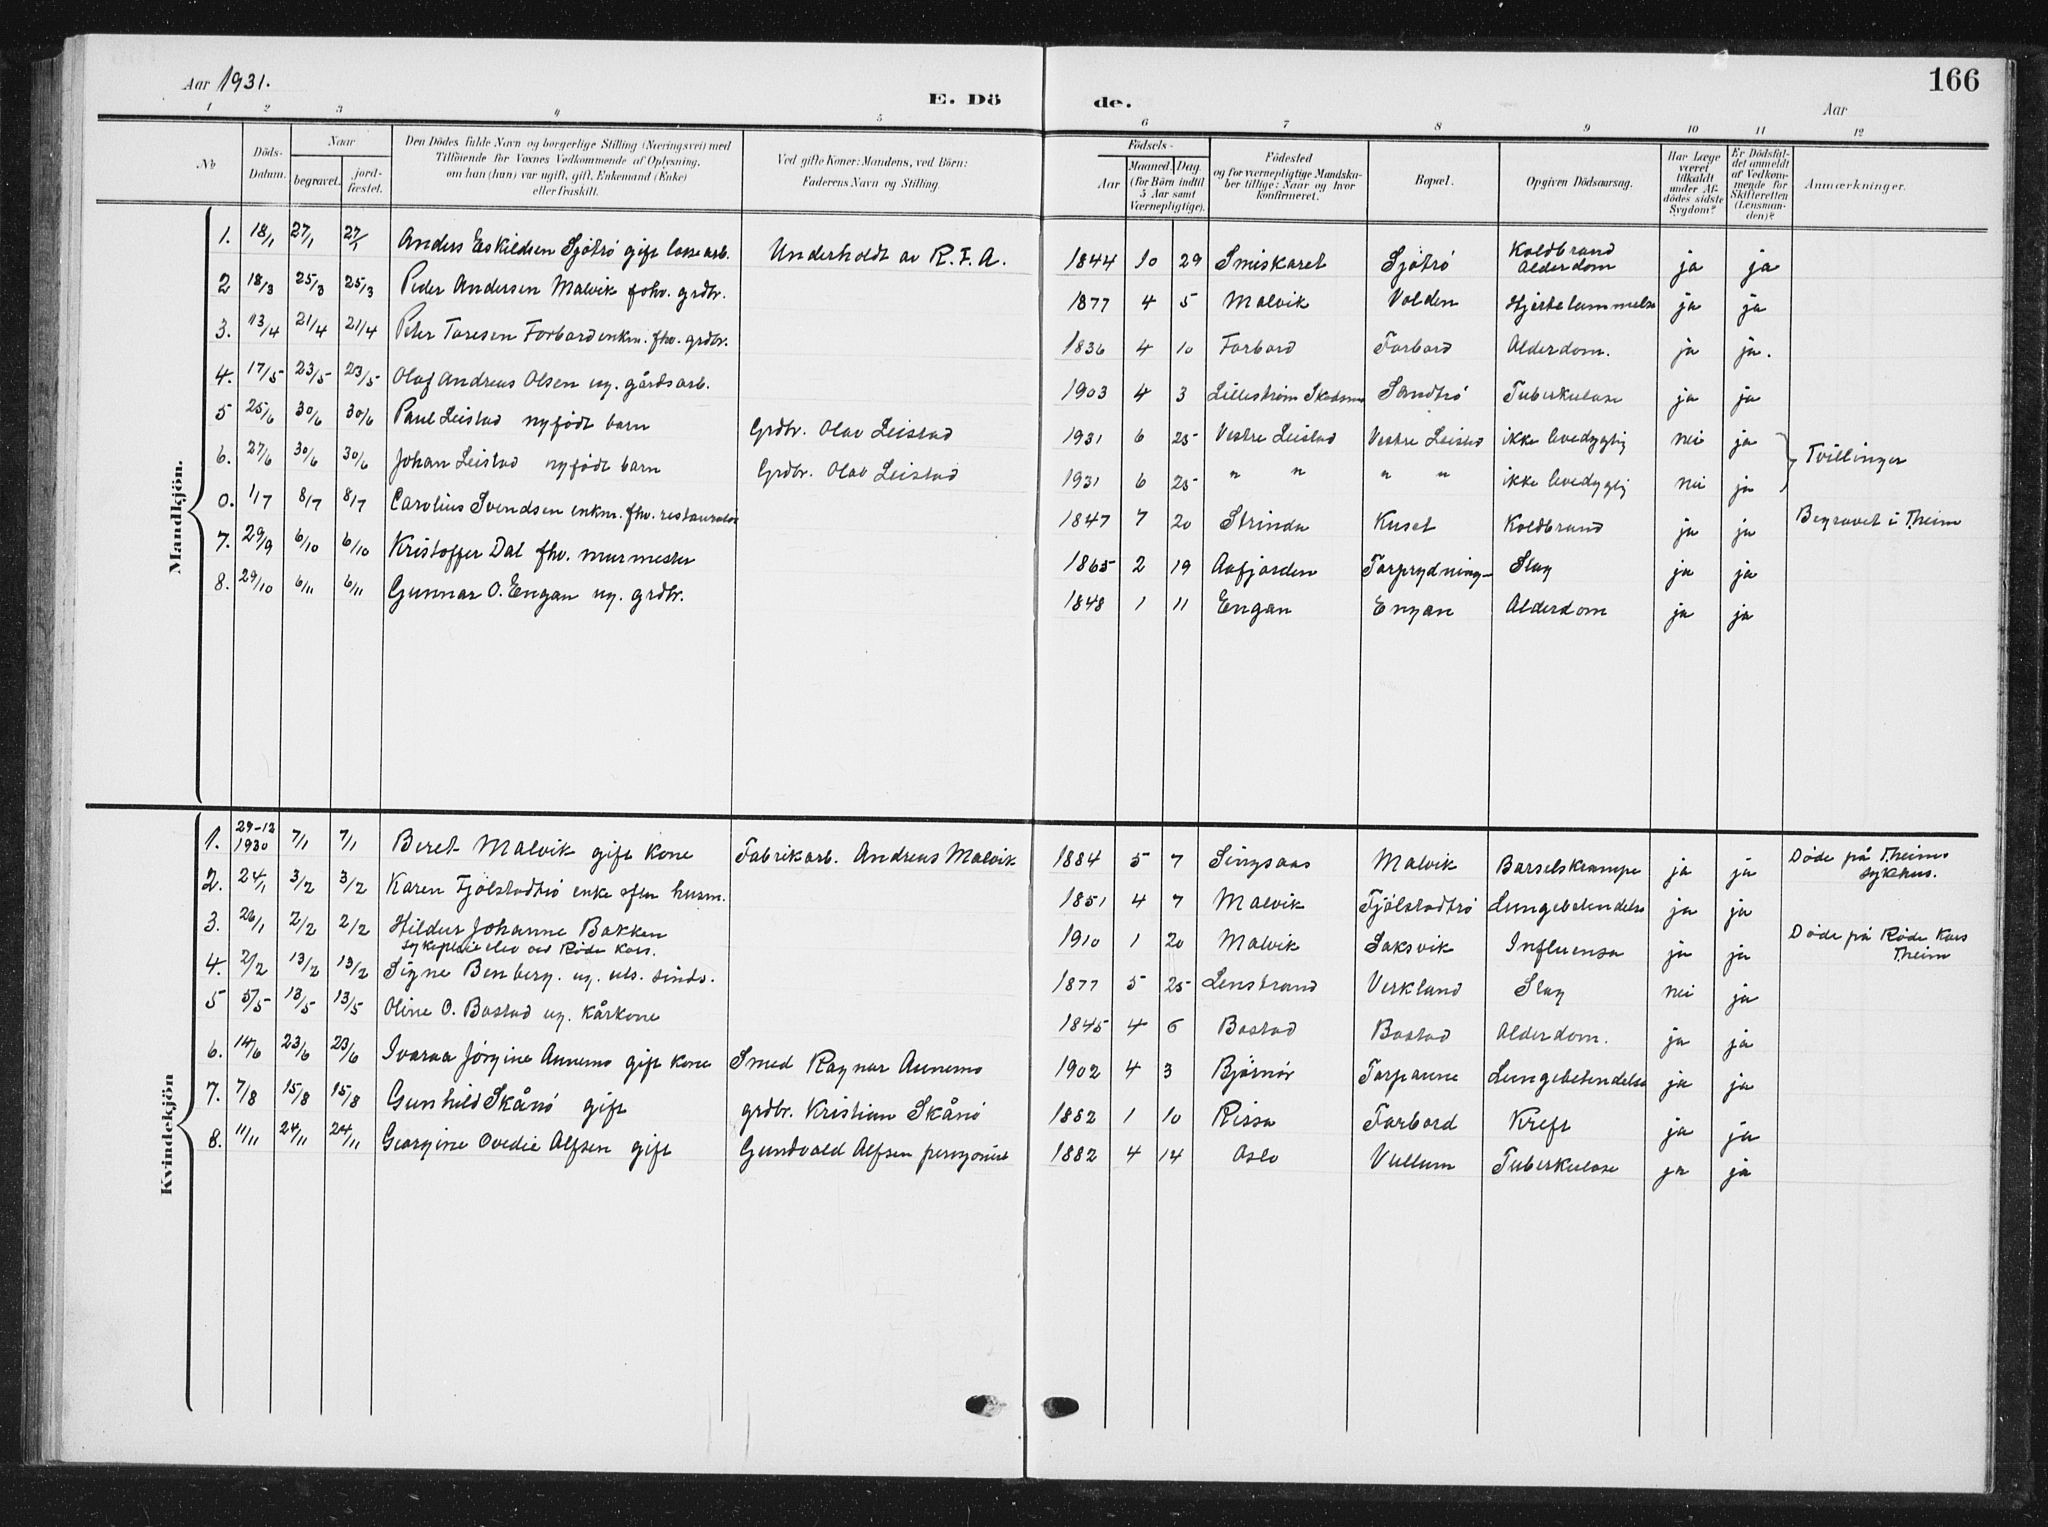 Aar 1931.
E. Dö
de.
Aar
166
1 2 3 4 5 6 7 8 9 10 11 12
No
Döds-Datum.
Naar
begravet.
jordfæstet.
Den Dödes fulde Navn og borgerlige Stilling (Næringsvei) med
Tilföiende for Voxnes Vedkommende af Oplysning,
om han (hun) var ugift, gift, Enkemand (Enke)
eller fraskilt.
Ved gifte Koner: Mandens, ved Börn:
Faderens Navn og Stilling.
Födsels-
Aar
Maaned. Dag.
(for Börn indtil
5 Aar samt
Værnepligtige).
Födested
og for værnepligtige Mandska-
ber tillige: Naar og hvor
konfirmeret.
Bopæl.
Opgiven Dödsaarsag.
Har Læge
været
tilkaldt
under Af-
dödes sidste
Sygdom?
Er Dödsfal-
det anmeldt
af Vedkom-
mende for
Skifteretten
(Lensman-
den)?
Anmærkninger.
Mandkjön.
1. 18/1 27/1 27/1 Anders Eskildsen Sjötrö gift losse arb. Underholdt av R. F. A. 1844 10 29 Smiskaret Sjötrö Koldbrand Alderdom ja ja
2 18/3 25/3 25/3 Peder Andersen Malvik fhv. grdbr. 1877 4 5 Malvik Volden Hjertelammelse ja ja
3. 13/4 21/4 21/4 Peter Toresen Forbord enkm. fhv. grdbr. 1836 4 10 Forbord Forbord Alderdom. ja ja.
4. 17/5 23/5 23/5 Olaf Andreas Olsen ug. gårdsarb. 1903 4 3 Lilleström Skedsmo Sandtrö Tuberkulose ja ja
5 25/6 30/6 30/6 Paul Leistad nyfødt barn Grdbr. Olav Leistad 1931 6 25 Vestre Leistad Vestre Leistad ikke levedygtig nei ja
6. 27/6 30/6 30/6 Johan Leistad nyfødt barn Grdbr. Olav Leistad 1931 6 25 " " " " ikke levedygtig nei ja Tvillinger
0. 1/7 8/7 8/7 Carolius Svendsen enkm. fhv. restauratør 1847 7 20 Strinda Kuset Koldbrand ja ja Begravet i T.heim
7. 29/9 6/10 6/10 Kristoffer Dal fhv. murmester 1865 2 19 Aafjorden Torprydning Slag ja ja
8. 29/10 6/11 6/11 Gunnar O. Engan ug. grdbr. 1848 1 11 Engan Engan Alderdom ja ja
Kvindekjön
1. 29-12 1930 7/1 7/1 Beret Malvik gift kone Fabrikarb. Andreas Malvik 1884 5 7 Singsaas Malvik Barselskrampe ja ja Døde på T.heims sykehus.
2. 24/1 3/2 3/2 Karen Fjölstadtrö enke efter husm. 1851 4 7 Malvik Fjölstadtrö Lungebetendelse ja ja
3. 26/1 2/2 2/2 Hildur Johanne Bakken sykepleieelev ved Røde Kors. 1910 1 20 Malvik Saksvik Influensa ja ja Døde på Røde Kors T.heim
4. 2/2 13/2 13/2 Signe Benberg. ug. uts. sinds. 1877 5 25 Lenstrand Verkland Slag nei ja
5 5/5 13/5 13/5 Oline O. Bostad ug. kårkone 1845 4 6 Bostad Bostad Alderdom. ja ja
6. 14/6 23/6 23/6 Ivaraa Jörgine Aunemo gift kone Smed Ragnar Aunemo 1902 4 3 Bjørnör Torpaune Lungebetendelse ja ja
7. 7/8 15/8 15/8 Gunhild Skånö gift grdbr. Kristian Skånö 1882 1 10 Rissa Forbord Kreft ja ja
8. 11/11 24/11 24/11 Georgine Ovedie Alfsen gift Gundvald Alfsen pensjonist 1882 4 14 Oslo Vullum Tuberkulose ja ja